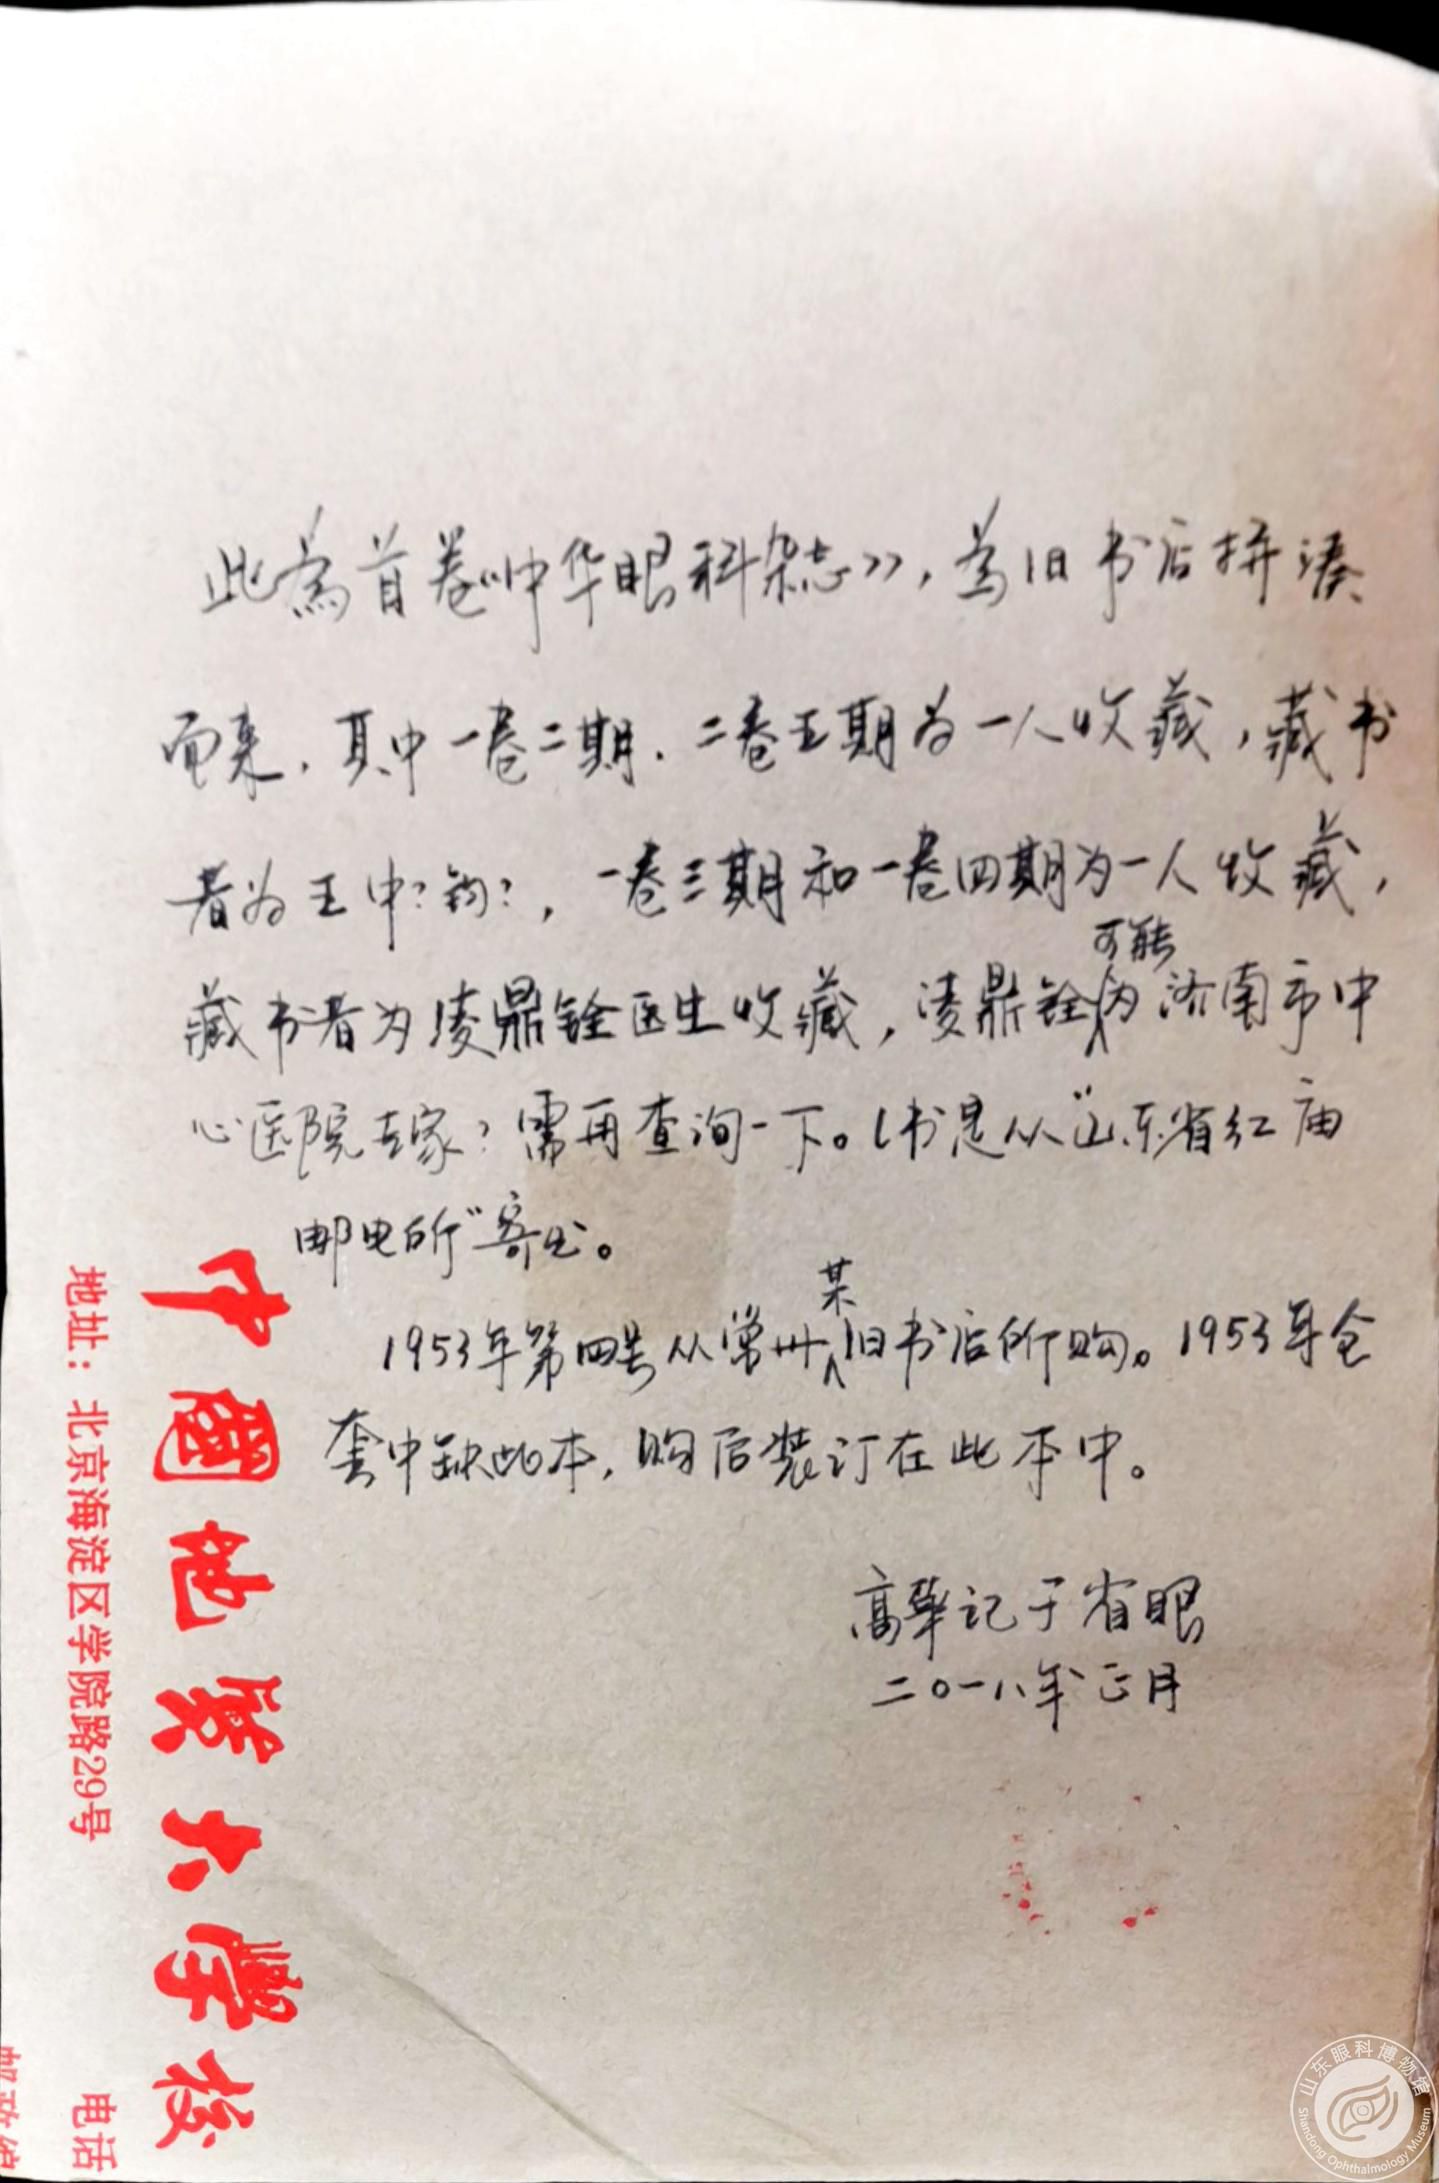 此为首卷《中华眼科杂志》，为旧书店拼凑
而来，其中一卷二期、二卷五期为一人收藏，藏书
者为王中？钧？，一卷三期和一卷四期为一人收藏，
藏书者为凌鼎铨医生收藏，凌鼎铨可能为济南市中
心医院专家？需再查询一下。（书是从“山东省红庙
邮电所”寄出。
1953年第四号从常州某旧书店所购。1953年全
套中缺此本，购后装订在此本中。
高华记于省眼
二〇一八年正月
中国地质大学校
地址：北京海淀区学院路29号
电话
山东眼科博物馆
Shandong Ophthalmology Museum